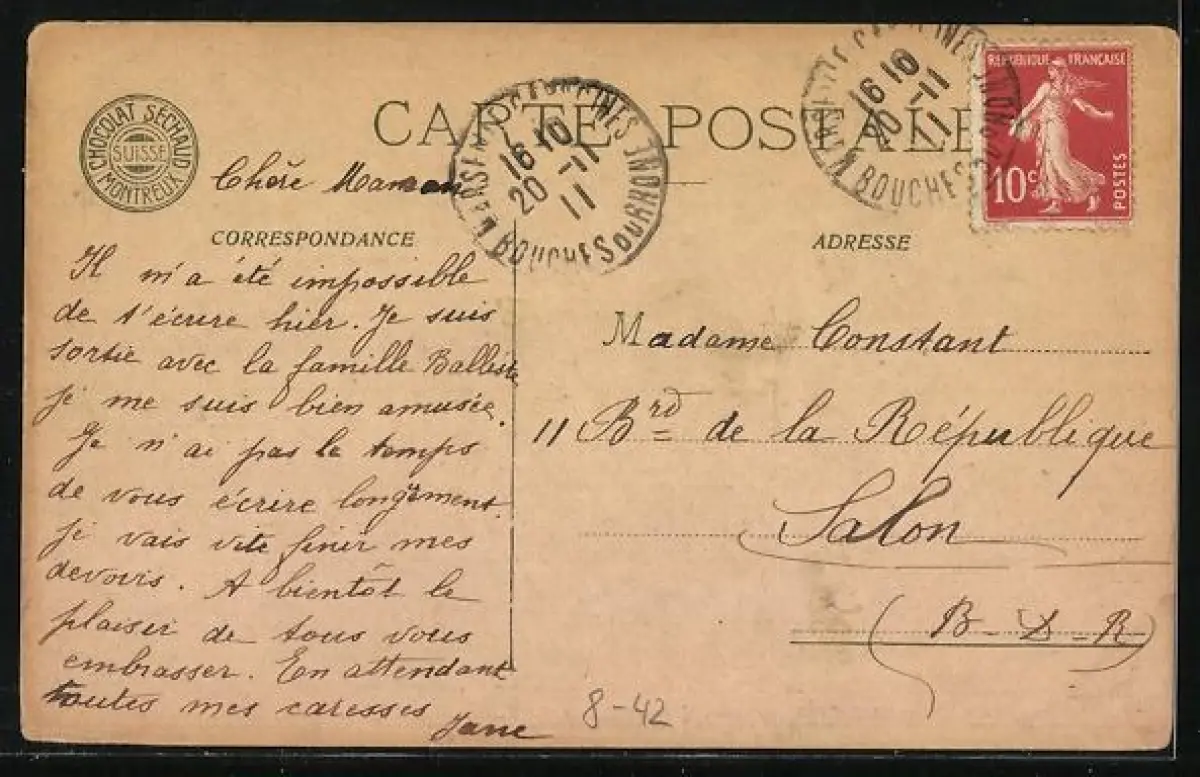 CARTE POSTALE
CHOCOLAT SÉCHAUD
SUISSE
MONTREUX
16 10
20 -11
11
BOUCHES DU RHONE
16 10
20 -11
11
BOUCHES
REPUBLIQUE FRANÇAISE
10c
POSTES
Chère Maman
CORRESPONDANCE
Il m'a été impossible
de t'écrire hier. Je suis
sortie avec la famille
je me suis bien amusée.
Je n'ai pas le temps
de vous écrire longtement.
je vais vite finir mes
devoirs. A bientôt le
plaisir de tous vous
embrasser. En attendant
toutes mes caresses
Jane
ADRESSE
Madame Constant
11 Brd de la République
Salon
(B-D-R)
8-42